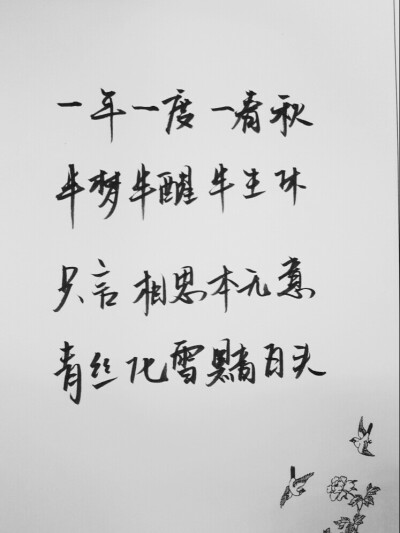 一年一度一春秋
半梦半醒半生休
只言相思本无意
青丝化雪黯白头